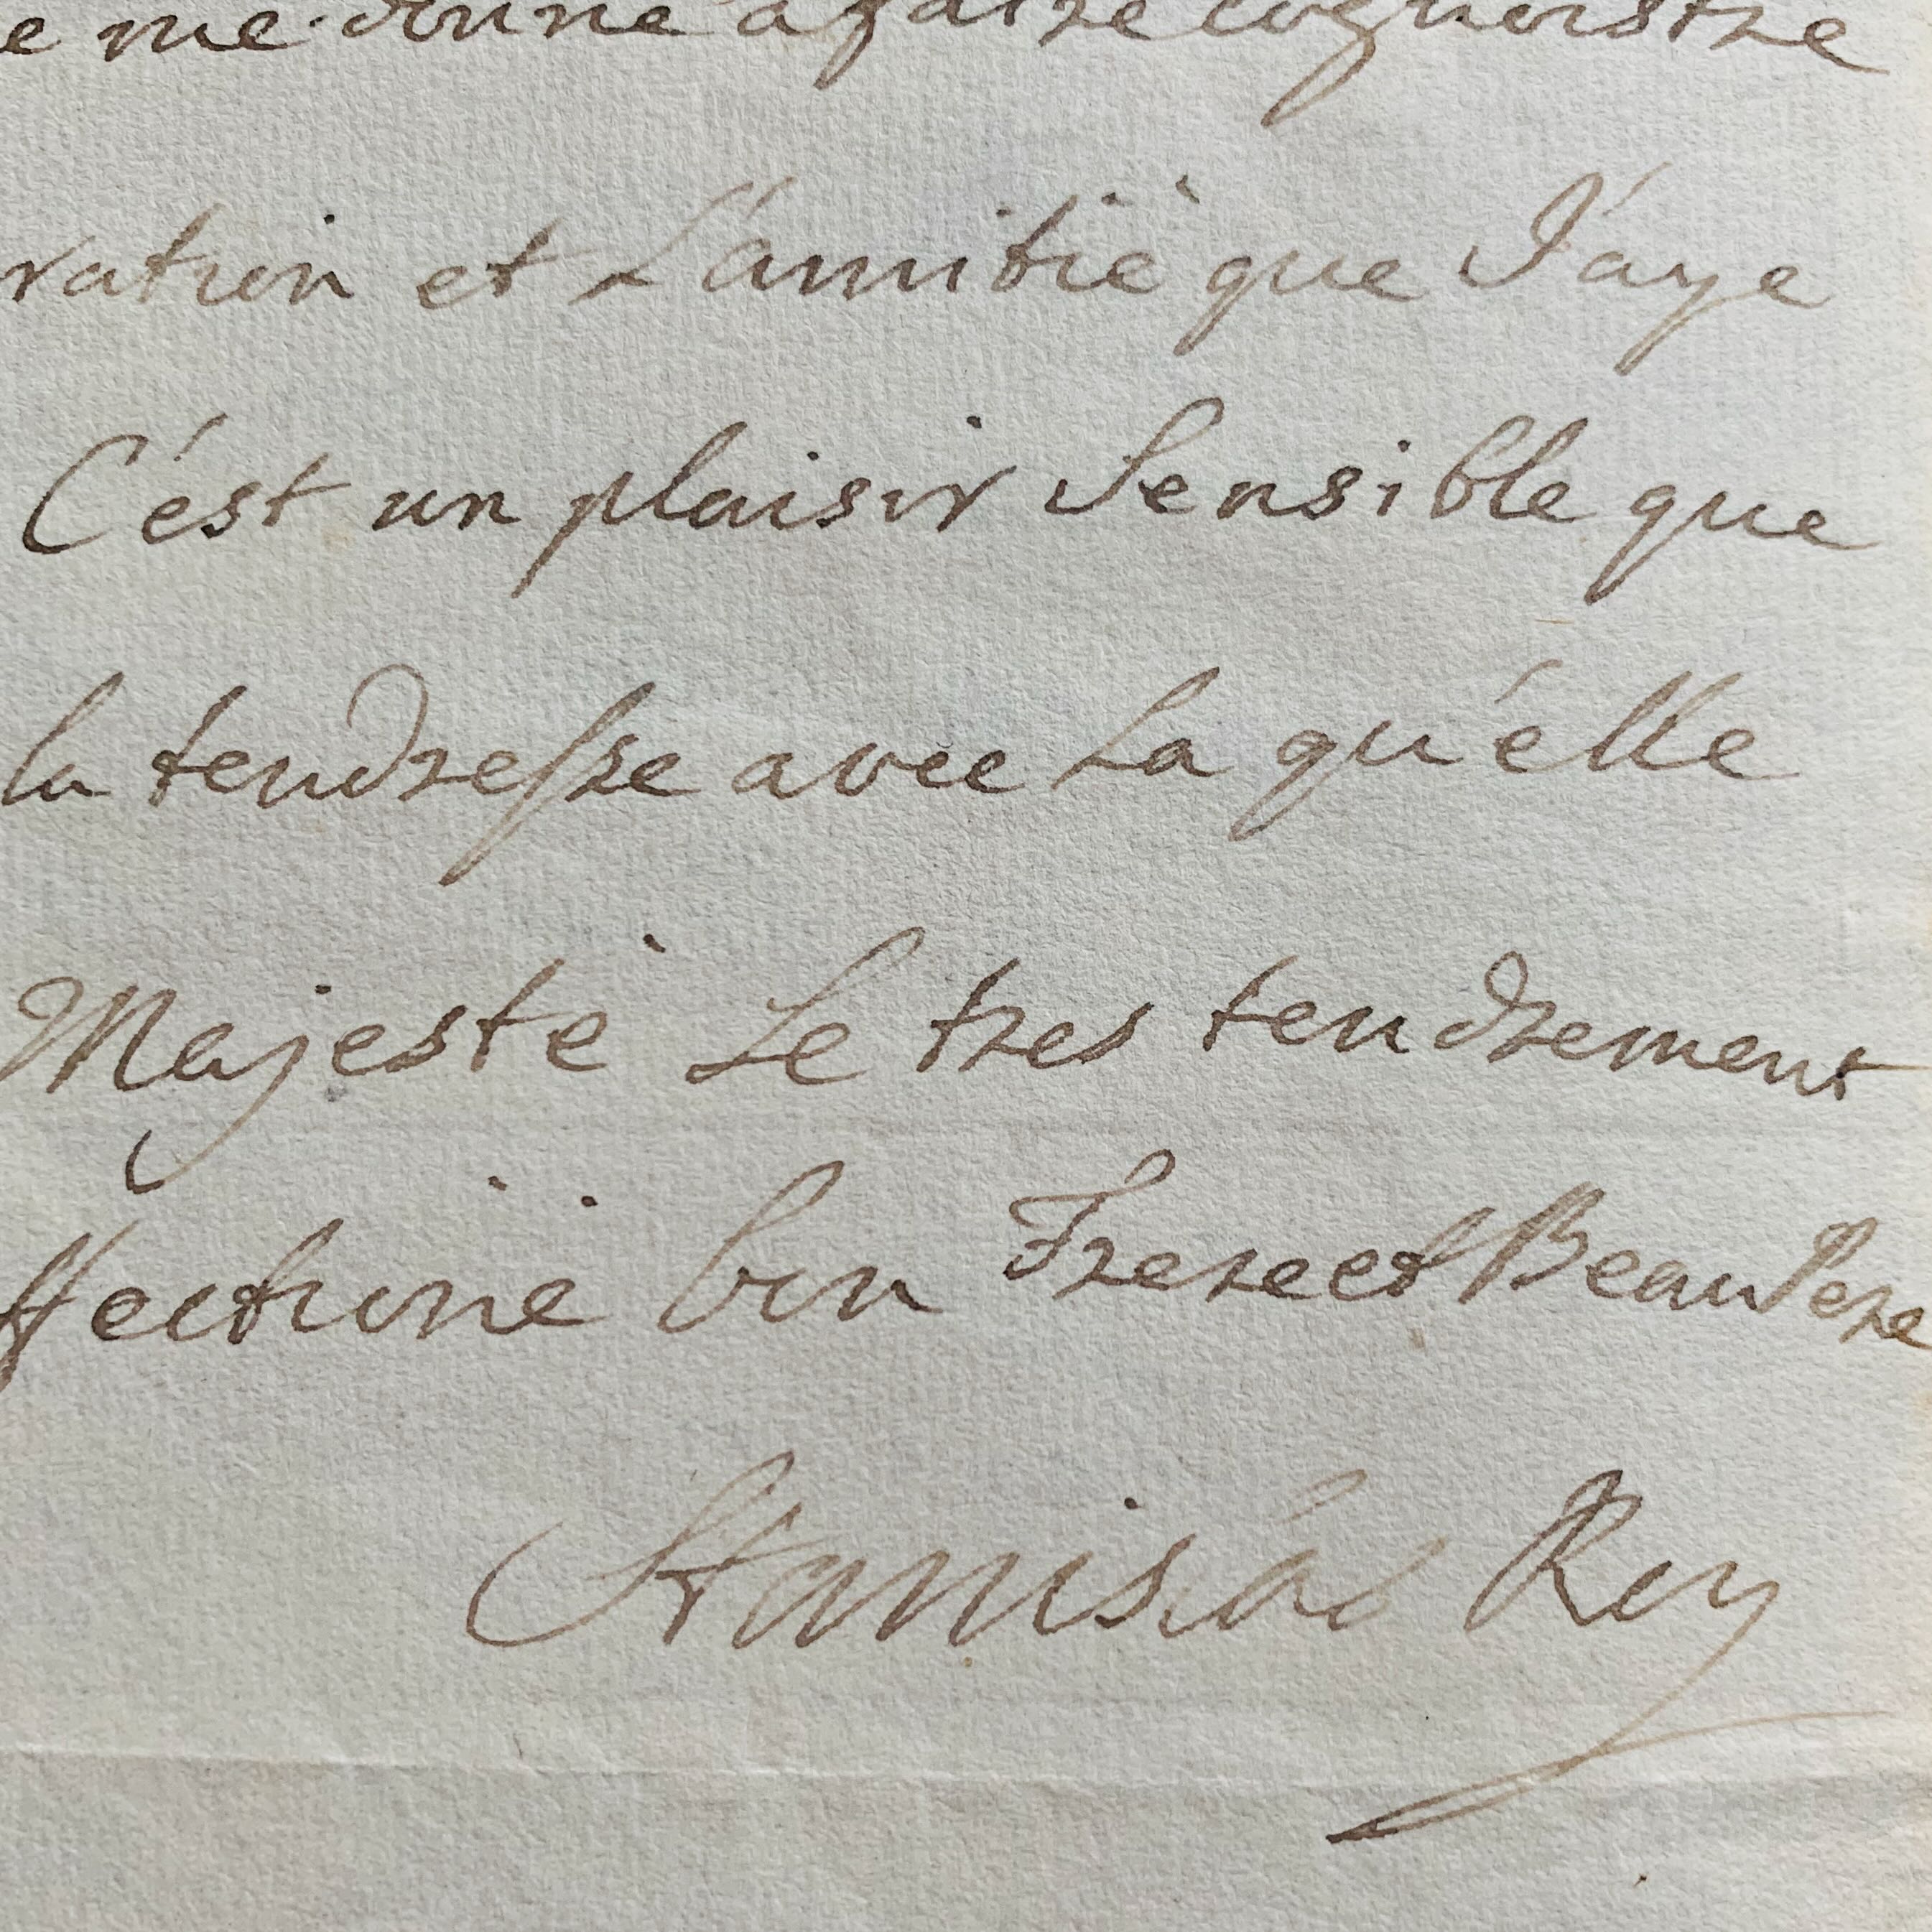 e me donne a faire cognoistre
ration et L'amitiè que J'aye
C'est un plaisir Sensible que
la tendresse avec La qu'elle
Majestè Le tres tendrement
ffectionè bon Frere et Beau Pere
Stanislas Roy